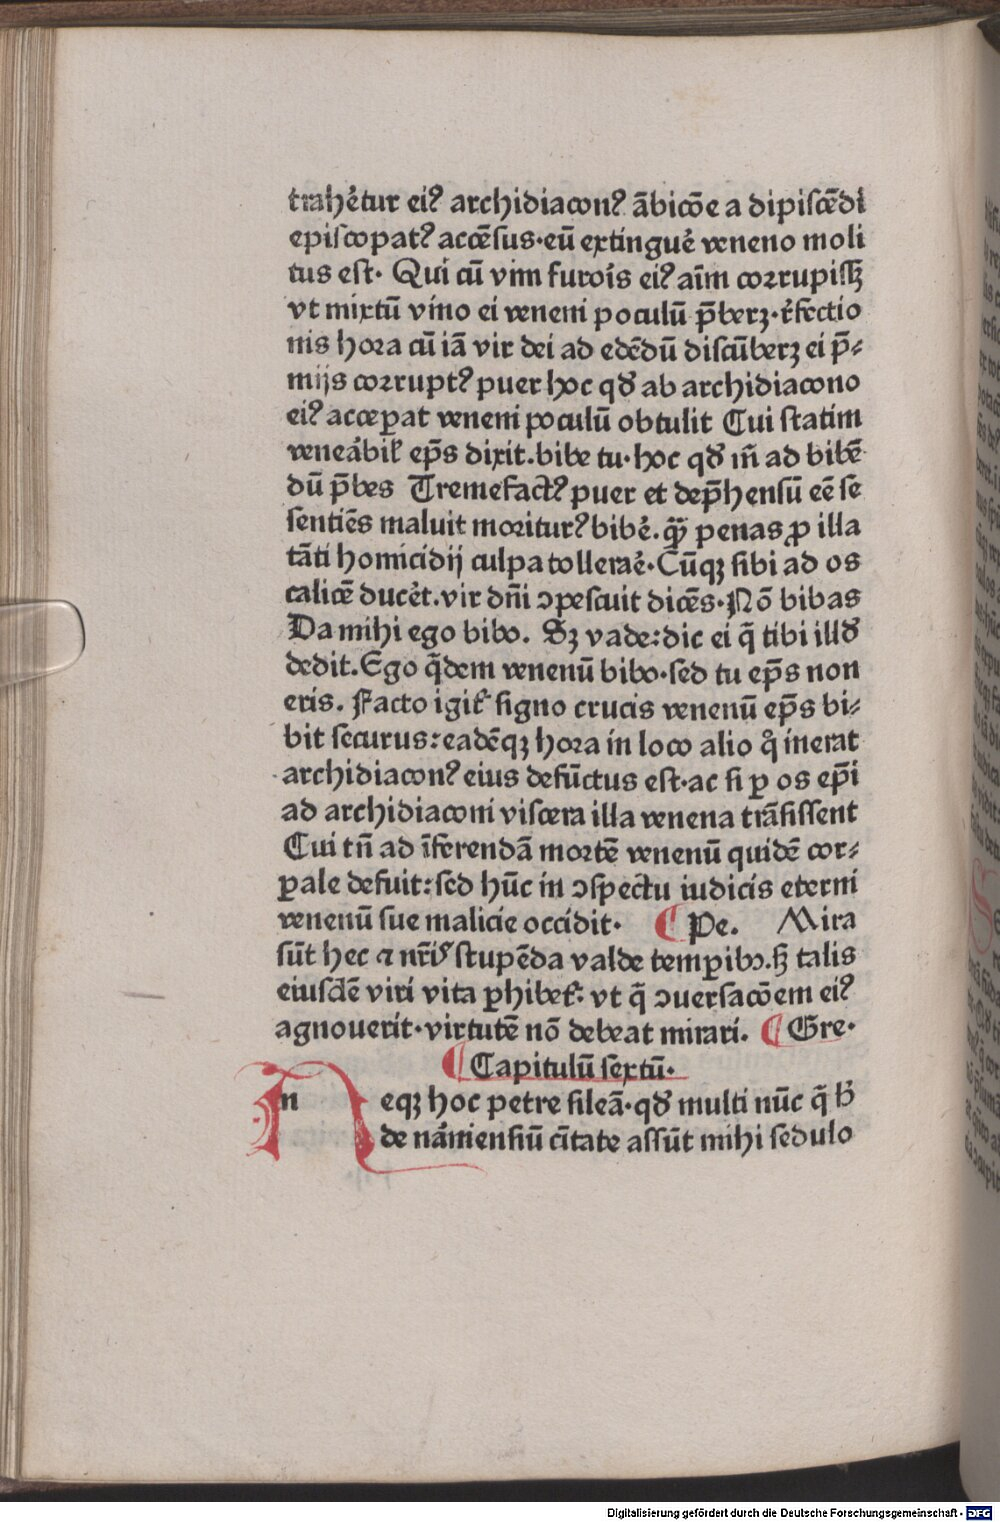 trahēt̛ur eiꝰ archidiaconꝰ ābicōe a dipiscēdi
episcopatꝰ accēsus·eū extinguē veneno moli
tus est· Qui cū vim furoīs eiꝰ aīm corrupisꝫ
vt mixtū vino ei veneni poculū p̄berꝫ·r̄fectio
nis hora cū iā vir dei ad edēdū discūberꝫ ei p̄⸗
mijs corruptꝰ puer hoc qđ ab archidiacono
eiꝰ acceꝑat veneni poculū obtulit Cui statim
veneābil̛ ep̄s dixit.bibe tu·hoc qđ m̄ ad bibē
dū p̄bes Tremefactꝰ puer et dep̄hensū eē se
sentiēs maluit moriturꝰ bibē.qꝫ̄ penas ꝓ illa
tāti homicidij culpa tolleraē·Cūqꝫ sibi ad os
calicē ducēt.vir dn̄i ↄpescuit dicēs·Nō bibas
Da mihi ego bibo. Sꝫ vade:dic ei q̄ tibi illđ
dedit.Ego q̄dem venenū bibo·sed tu ep̄s non
eris. Facto igit̛ signo crucis venenū ep̄s bi⸗
bit securus:eadēqꝫ hora in loco alio q̊ inerat
archidiaconꝰ eius defūctus est·ac si ꝑ os ep̄i
ad archidiaconi viscera illa venena trāsissent
Cui tn̄ ad īferendā mortē venenū quidē cor⸗
ꝑale defuit:sed hūc in ↄspectu iudicis eterni
venenū sue malicie occidit· ¶ Pe. Mira
sūt hec ⁊ nr̄is stupēda valde temꝑibꝫ.sꝫ talis
eiusdē viri vita ꝑhibet̛· vt q̄ ↄuersacōem eiꝰ
agnouerit·virtutē nō debeat mirari. ¶ Gre·
¶ Capitulū sextū·
Nn eqꝫ hoc petre sileā·qđ multi nūc q̄ h̄
de nāniensiū cītate assūt mihi sedulo
Digitalisierung gefördert durch die Deutsche Forschungsgemeinschaft - DFG